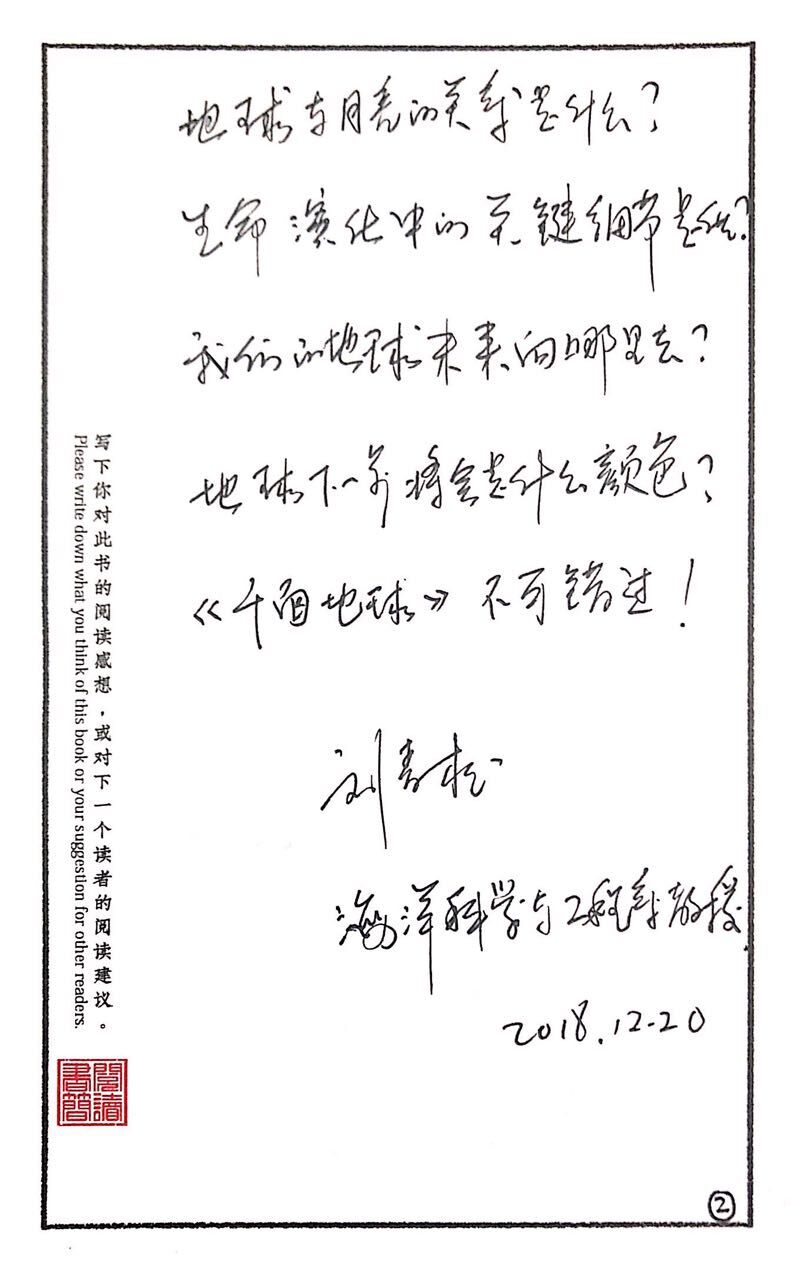 地球与月亮的关系是什么？
生命演化中的关键细节是什么？
我们的地球未来向哪里去？
地球下一步将会是什么颜色？
《千面地球》不可错过！
刘青松
海洋科学与工程系教授
2018.12.20
写下你对此书的阅读感想，或对下一个读者的阅读建议。
Please write down what you think of this book or your suggestion for other readers.
閱讀書簡
2